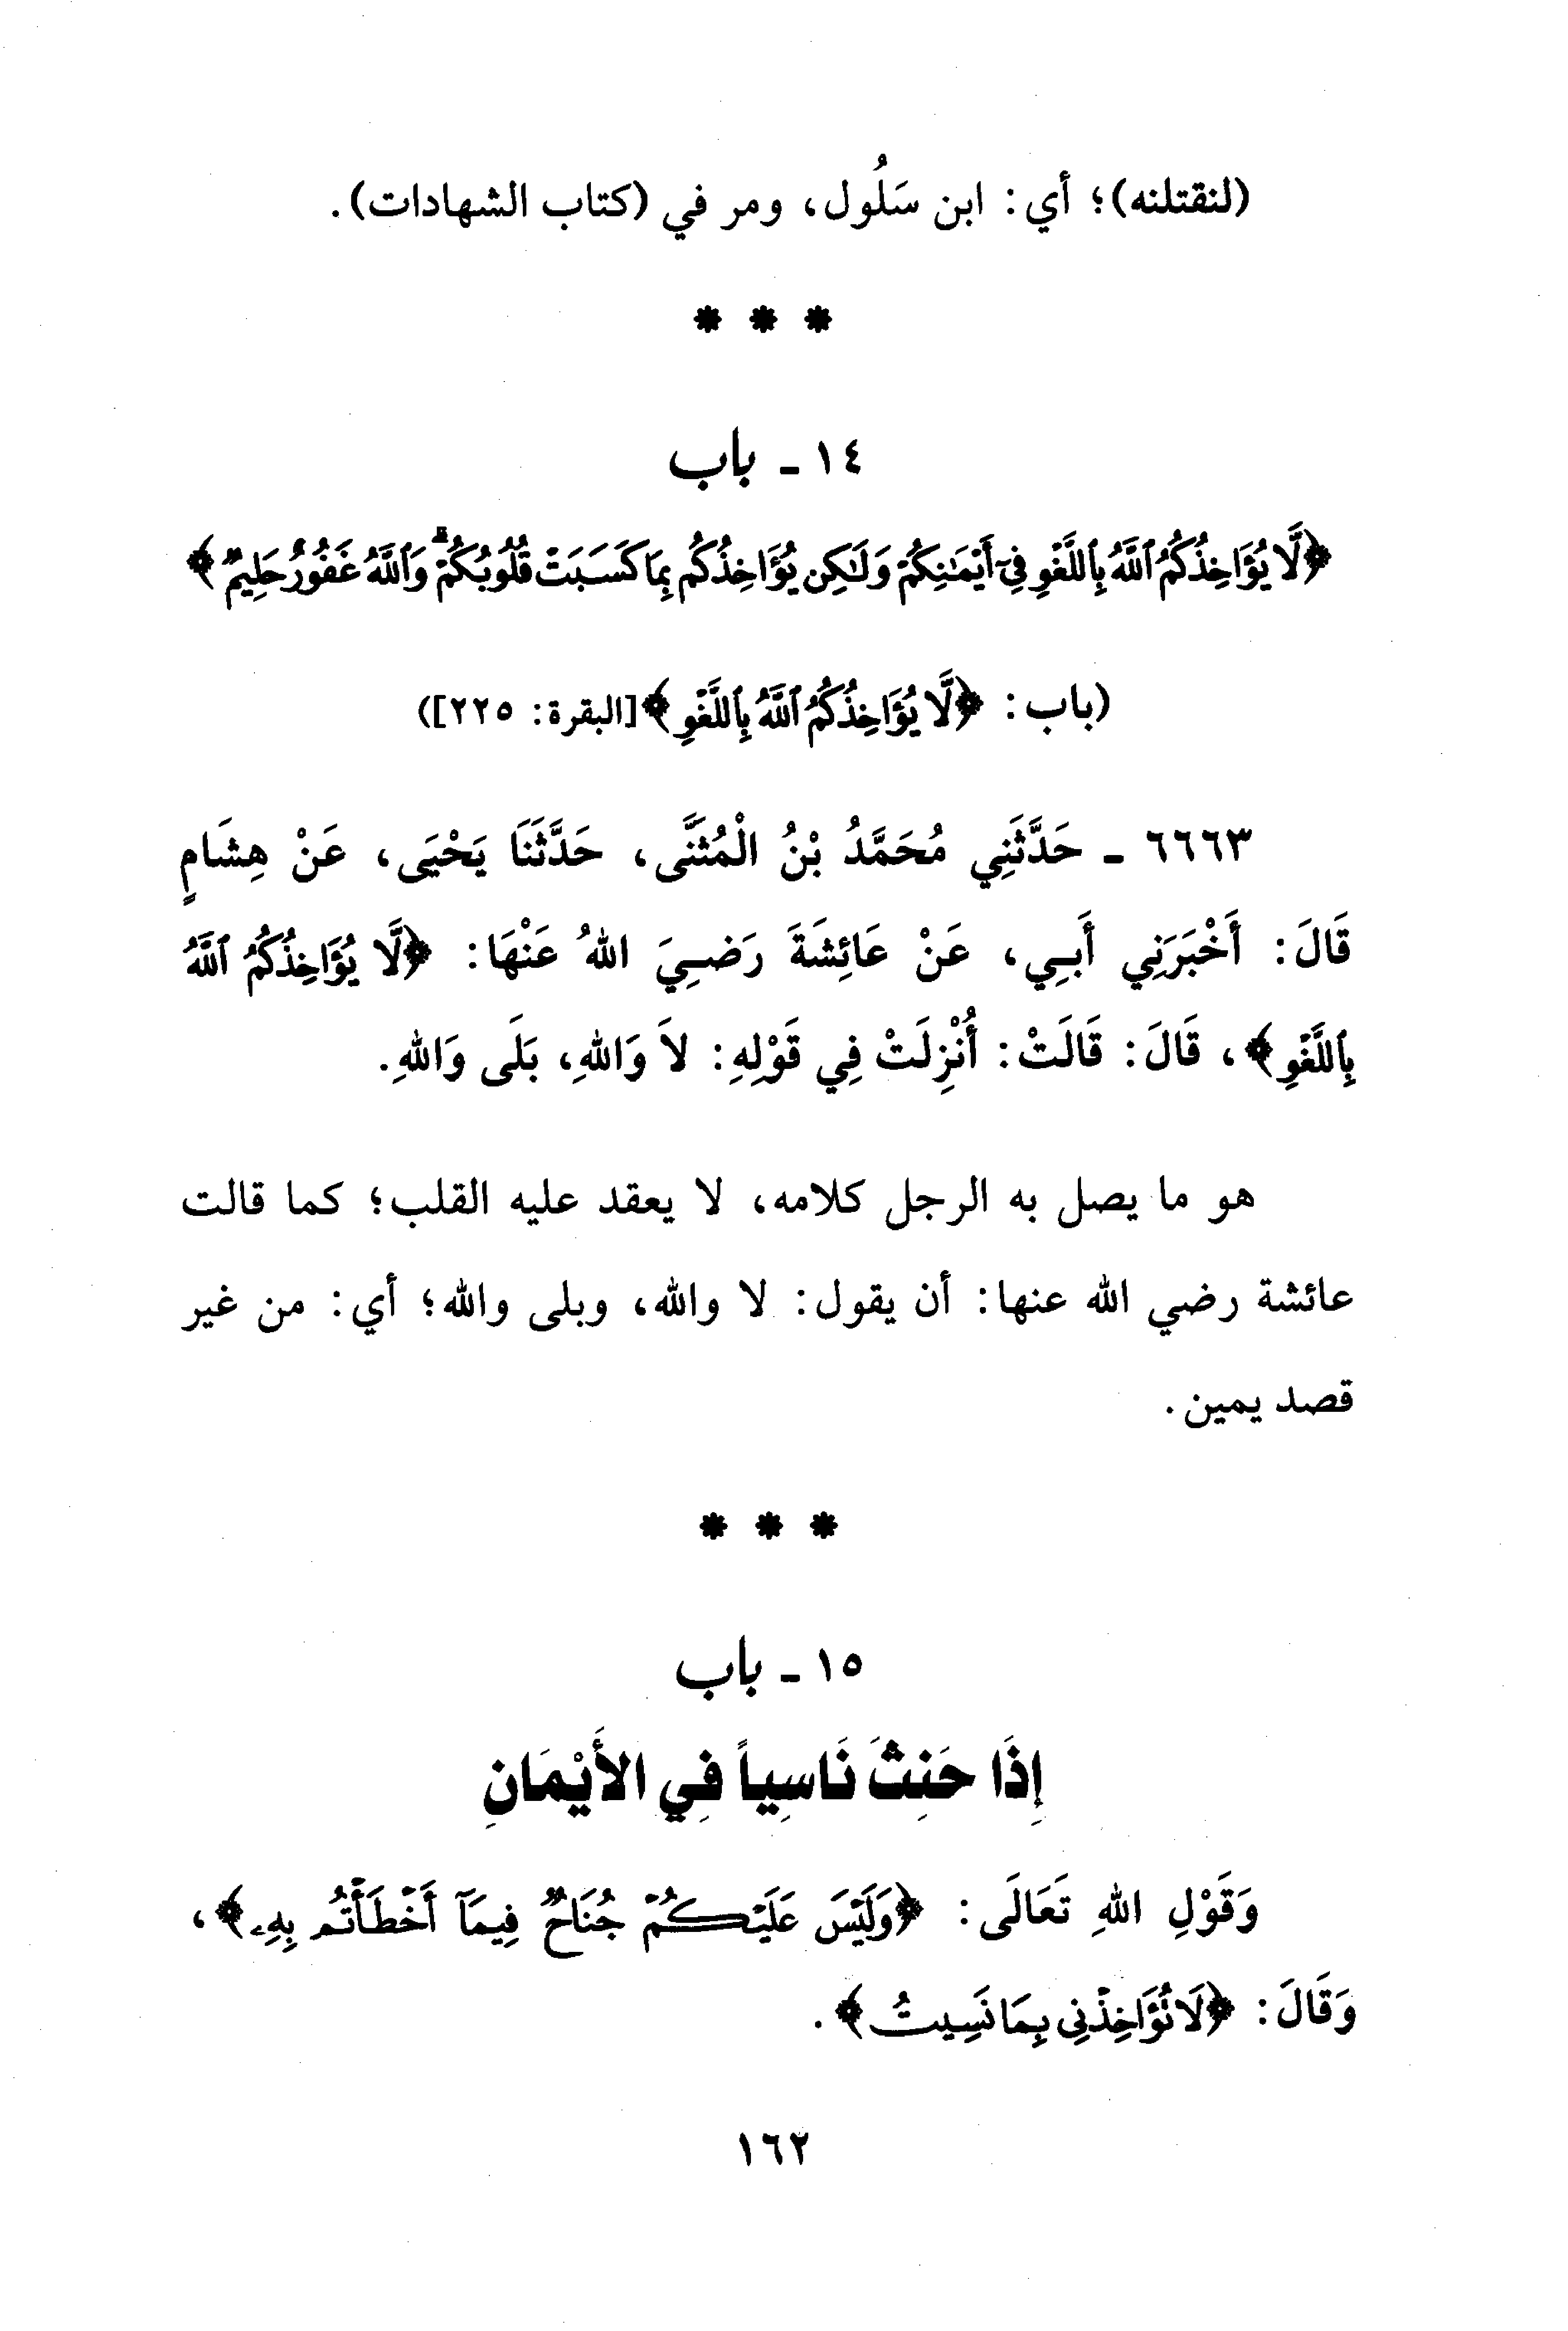 (لنقتلنه)؛ أي: ابن سَلُول، ومر في (كتاب الشهادات).
* * *
١٤ - باب
﴿لَّا يُؤَاخِذُكُمُ ٱللَّهُ بِٱللَّغْوِ فِىٓ أَيْمَٰنِكُمْ وَلَٰكِن يُؤَاخِذُكُم بِمَا كَسَبَتْ قُلُوبُكُمْ ۗ وَٱللَّهُ غَفُورٌ حَلِيمٌ﴾
(باب: ﴿لَّا يُؤَاخِذُكُمُ ٱللَّهُ بِٱللَّغْوِ﴾ [البقرة: ٢٢٥])
٦٦٦٣ - حَدَّثَنِي مُحَمَّدُ بْنُ الْمُثَنَّى، حَدَّثَنَا يَحْيَى، عَنْ هِشَامٍ
قَالَ: أَخْبَرَنِي أَبِي، عَنْ عَائِشَةَ رَضِيَ اللهُ عَنْهَا: ﴿لَّا يُؤَاخِذُكُمُ ٱللَّهُ
بِٱللَّغْوِ﴾، قَالَ: قَالَتْ: أُنْزِلَتْ فِي قَوْلِهِ: لاَ وَاللهِ، بَلَى وَاللهِ.
هو ما يصل به الرجل كلامه، لا يعقد عليه القلب؛ كما قالت
عائشة رضي الله عنها: أن يقول: لا والله، وبلى والله؛ أي: من غير
قصد يمين.
* * *
١٥ - باب
إِذَا حَنِثَ نَاسِياً فِي الأَيْمَانِ
وَقَوْلِ اللهِ تَعَالَى: ﴿وَلَيْسَ عَلَيْكُمْ جُنَاحٌ فِيمَآ أَخْطَأْتُم بِهِۦ﴾،
وَقَالَ: ﴿لَا تُؤَاخِذْنِى بِمَا نَسِيتُ﴾.
١٦٢